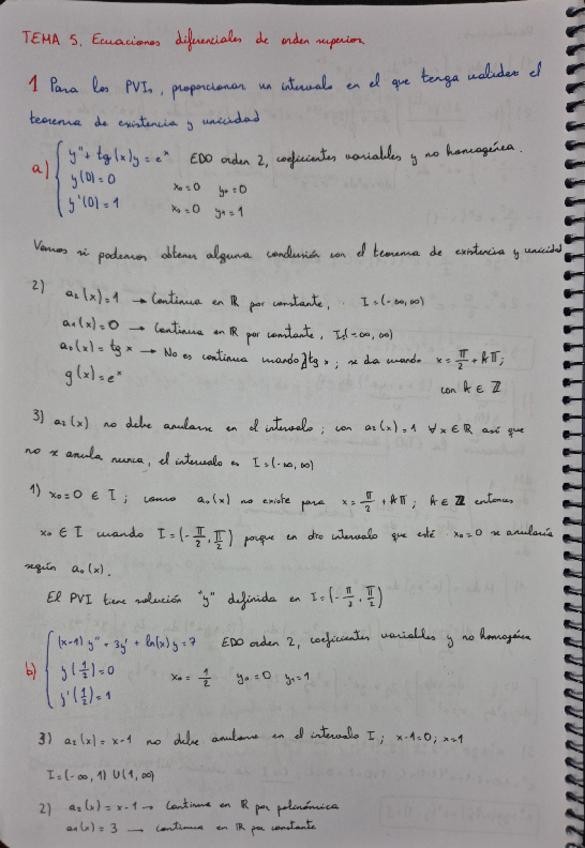 TEMA 5. Ecuaciones diferenciales de orden superior
1 Para los PVIs, proporcionar un intervalo en el que tenga validez el
teorema de existencia y unicidad
a) { y'' + tg(x)y = e^x   EDO orden 2, coeficientes variables y no homogénea.
y(0) = 0   x₀ = 0   y₀ = 0
y'(0) = 1   x₀ = 0   y₁ = 1
Veamos si podemos obtener alguna conclusión con el teorema de existencia y unicidad
2) a₂(x) = 1 → Continua en ℝ por constante, I = (-∞, ∞)
a₁(x) = 0 → Continua en ℝ por constante, I = (-∞, ∞)
a₀(x) = tg x → No es continua cuando ∄ tg x ; se da cuando x = π/2 + kπ;
g(x) = e^x   con k ∈ ℤ
3) a₂(x) no debe anularse en el intervalo; con a₂(x) = 1 ∀x ∈ ℝ así que
no se anula nunca, el intervalo es I = (-∞, ∞)
1) x₀ = 0 ∈ I ; como a₀(x) no existe para x = π/2 + kπ; k ∈ ℤ entonces
x₀ ∈ I cuando I = (-π/2, π/2) porque en otro intervalo que esté x₀ = 0 se anularía
según a₀(x).
El PVI tiene solución "y" definida en I = (-π/2, π/2)
b) { (x-1)y'' + 3y' + ln(x)y = 7   EDO orden 2, coeficientes variables y no homogénea
y(1/2) = 0   x₀ = 1/2   y₀ = 0   y₁ = 1
y'(1/2) = 1
3) a₂(x) = x-1 no debe anularse en el intervalo I ; x-1=0; x=1
I = (-∞, 1) ∪ (1, ∞)
2) a₂(x) = x-1 → Continua en ℝ por polinómica
a₁(x) = 3 → continua en ℝ por constante